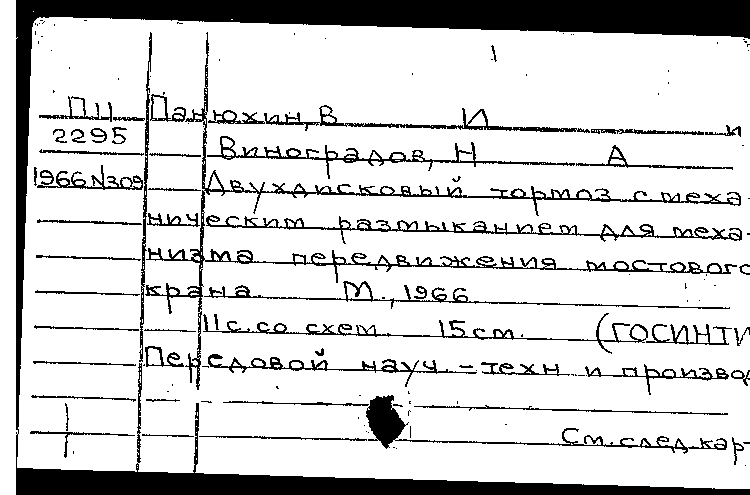 I
П11 Панюхин, В И и
2295 Виноградов, Н А
1966 N309 Двухдисковый тормоз с меха-
ническим размыканием для меха-
низма передвижения мостового
крана. М., 1966.
11с. со схем. 15см. (ГОСИНТИ
Передовой науч.-техн и произво
См. след. кар-